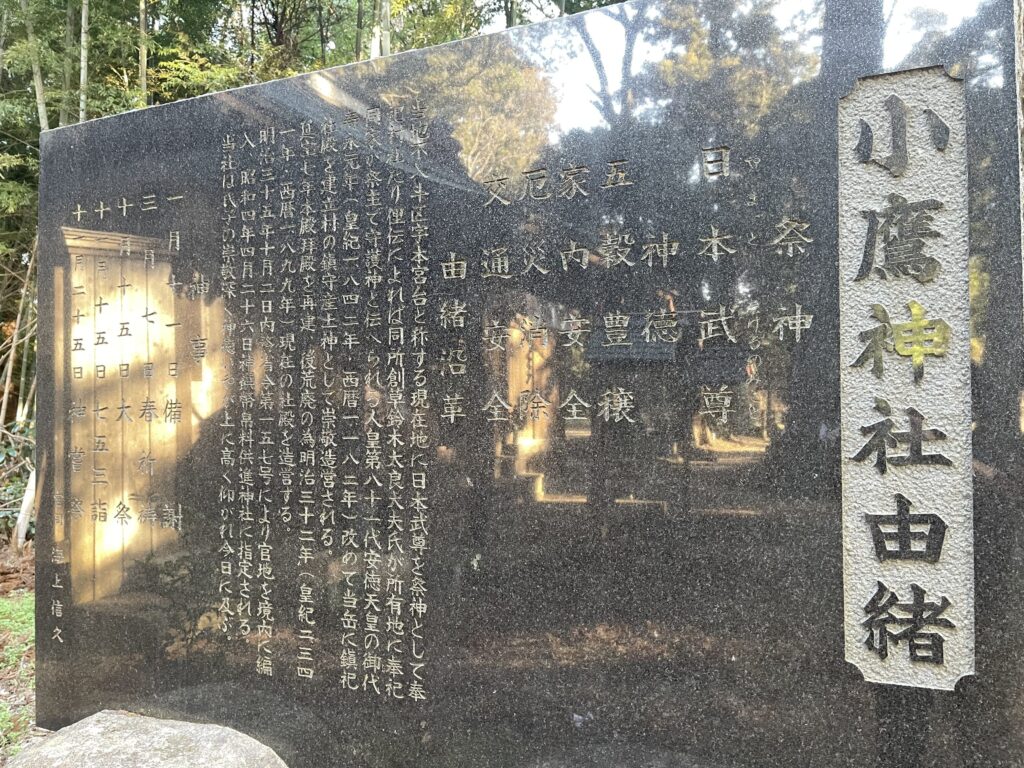 小鷹神社由緒
祭神
日本武尊
神徳
五穀豊穣
家内安全
厄災消除
交通安全
由緒沿革
斗区字本宮台と称する現在地に日本武尊を祭神として奉
り俚伝によれば同所創草鈴木太良大夫氏が所有地に奉祀
祭主で守護神と伝へられる人皇第八十一代安徳天皇の御代
永元年(皇紀一八四二年・西暦一一八二年)改めて当岳に鎮祀
殿を建立村の鎮守産土神として崇敬造営される。
七年本殿拝殿を再建 後荒廃の為明治三十二年(皇紀二三四
一年・西暦一八九九年)現社の社殿を造営する。
明治三十五年十月二日内務省令第一五七号により官地を境内に編
入、昭和四年四月二十六日神饌幣帛料供進神社に指定される
当社は氏子の崇敬深く神徳 上に高く仰がれ今日に及ぶ。
神事
一月十一日備謝
三月七日春祈祷
十月十五日大祭
十一月十五日七五三詣
十二月二十五日神賞祭
海上信久